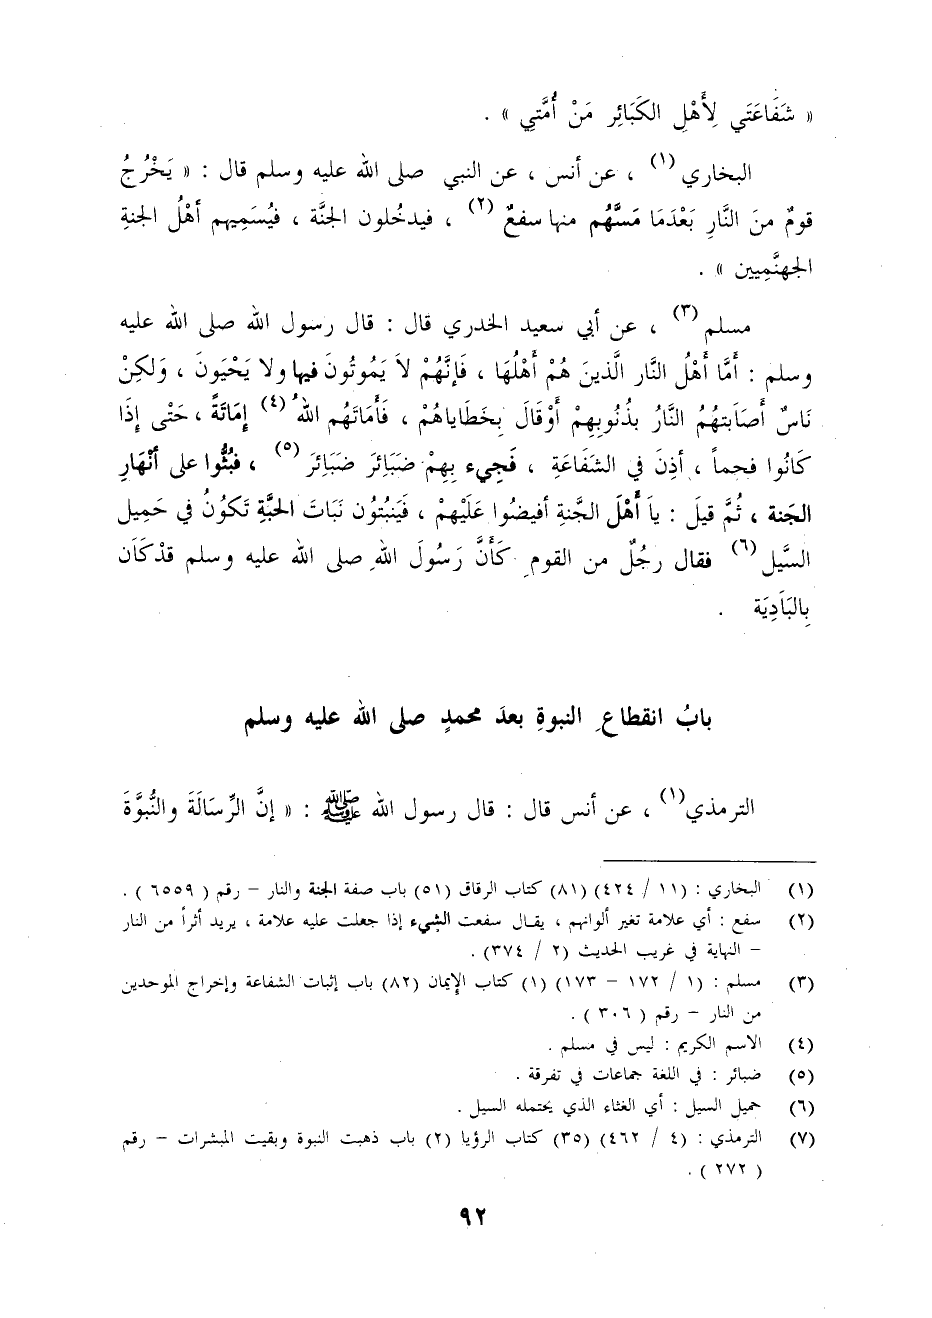 « شَفَاعَتي لِأَهْلِ الكَبَائِر مَنْ أُمَّتي » .
البخاري (١) ، عن أنس ، عن النبي صلى الله عليه وسلم قال : « يَخْرُجُ
قومٌ منَ النَّارِ بَعْدَمَا مَسَّهُم منها سفعٌ (٢) ، فيدخُلون الجنَّة ، فيُسَمِيهم أهْلُ الجنةِ
الجهنَّمِيين » .
مسلم (٣) ، عن أبي سعيد الخدري قال : قال رسول الله صلى الله عليه
وسلم : أَمَّا أَهْلُ النَّار الَّذينَ هُمْ أَهْلُهَا ، فَإنَّهُمْ لاَ يَمُوتُونَ فيها ولا يَحْيَونَ ، وَلَكِنْ
نَاسٌ أصَابَتهُمُ النَّارُ بذُنُوبِهِمْ أوْقَالَ بِخَطَاياهُمْ ، فَأمَاتَهُم اللهُ (٤) إمَاتَةً ، حَتْى إذَا
كَانُوا فحماً ، أذِنَ في الشفَاعَةِ ، فَجِيء بِهِمْ ضَبَائِرَ ضَبَائِرَ (٥) ، فَبُثُّوا على أنْهَارِ
الجَنة ، ثُمَّ قيلَ : ياَ أَهْلَ الجَّنةِ أفيضُوا عَلَيْهِمْ ، فَيَنبُتُون نَبَاتَ الحبَّةِ تَكوُنُ في حَمِيل
السَّيل (٦) فقال رجُلٌ من القومِ كَأَنَّ رَسُولَ اللهِ صلى الله عليه وسلم قدْكَاَن
بِالبَاَدِيَة .
بابُ انقطاعِ النبوةِ بعدَ محمدٍ صلى الله عليه وسلم
الترمذي (١) ، عن أنس قال : قال رسول الله ﷺ : « إنَّ الرِّسَالَةَ والنُّبوَّةَ
(١) البخاري : (١١ / ٤٢٤) (٨١) كتاب الرقاق (٥١) باب صفة الجنة والنار – رقم ( ٦٥٥٩ ) .
(٢) سفع : أي علامة تغير ألوانهم ، يقال سفعت الشيء إذا جعلت عليه علامة ، يريد أثراً من النار
– النهاية في غريب الحديث (٢ / ٣٧٤) .
(٣) مسلم : (١ / ١٧٢ – ١٧٣) (١) كتاب الإيمان (٨٢) باب إثبات الشفاعة وإخراج الموحدين
من النار – رقم ( ٣٠٦ ) .
(٤) الاسم الكريم : ليس في مسلم .
(٥) ضبائر : في اللغة جماعات في تفرقة .
(٦) حميل السيل : أي الغثاء الذي يحتمله السيل .
(٧) الترمذي : (٤ / ٤٦٢) (٣٥) كتاب الرؤيا (٢) باب ذهبت النبوة وبقيت المبشرات – رقم
( ٢٧٢ ) .
٩٢